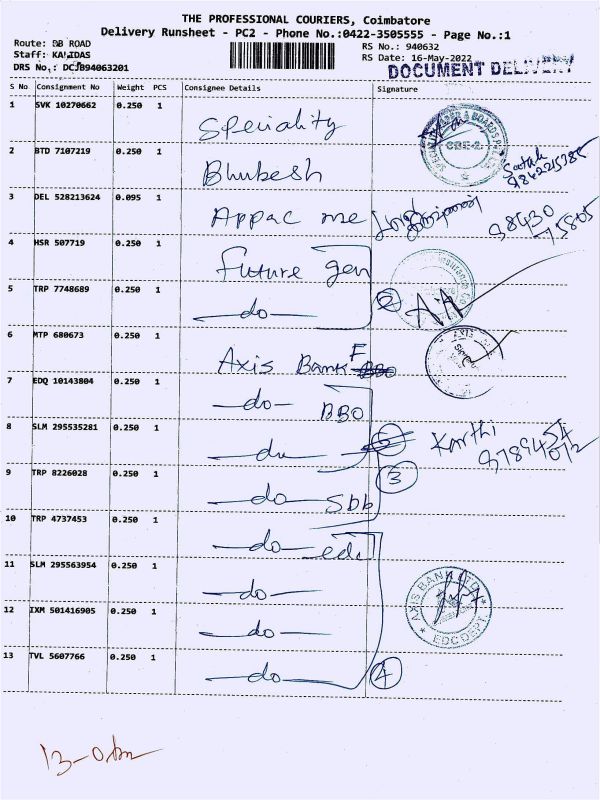 THE PROFESSIONAL COURIERS, Coimbatore
Delivery Runsheet - PC2 - Phone No.:0422-3505555 - Page No.:1
Route: DB ROAD RS No.: 940632
Staff: KALIDAS RS Date: 16-May-2022
DRS No.: DCJB94063201 DOCUMENT DELIVERY
S No Consignment No Weight PCS Consignee Details Signature
1 SVK 10270662 0.250 1 Speciality
2 BTD 7107219 0.250 1 Bhubesh
3 DEL 528213624 0.095 1 Appac me 98430 75805
4 HSR 507719 0.250 1 Future gen
5 TRP 7748689 0.250 1 do 2
6 MTP 680673 0.250 1 Axis Bank F
7 EDQ 10143804 0.250 1 do BBO
8 SLM 295535281 0.250 1 do Karthi
9 TRP 8226028 0.250 1 do Sbb 3
10 TRP 4737453 0.250 1 do edc
11 SLM 295563954 0.250 1 do AXIS BANK LTD EDC DEPT.
12 IXM 501416905 0.250 1 do
13 TVL 5607766 0.250 1 do 4